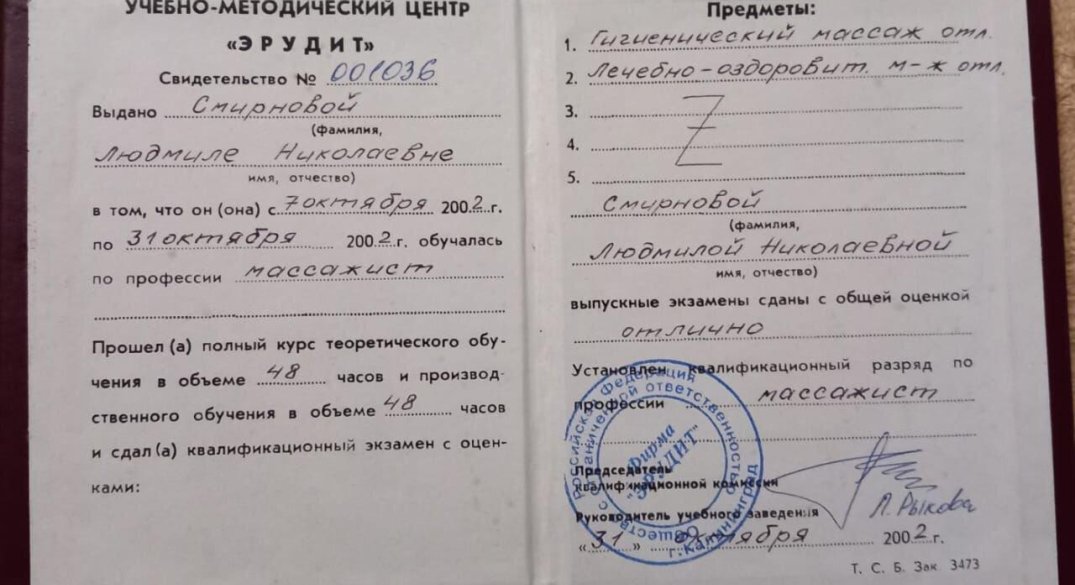 УЧЕБНО-МЕТОДИЧЕСКИЙ ЦЕНТР
«ЭРУДИТ»
Свидетельство № 001036
Выдано Смирновой
(фамилия,
Людмиле Николаевне
имя, отчество)
в том, что он (она) с 7 октября 2002 г.
по 31 октября 2002 г. обучалась
по профессии массажист
Прошел (а) полный курс теоретического обу-
чения в объеме 48 часов и производ-
ственного обучения в объеме 48 часов
и сдал (а) квалификационный экзамен с оцен-
ками:
Предметы:
1. Гигиенический массаж отл.
2. Лечебно-оздоровит. м-ж отл.
3.
4.
5.
Смирновой
(фамилия,
Людмилой Николаевной
имя, отчество)
выпускные экзамены сданы с общей оценкой
отлично
Установлен квалификационный разряд по
профессии массажист
Председатель
квалификационной комиссии
Руководитель учебного заведения
Л. Рыкова
«31» октября 2002 г.
Т. С. Б. Зак. 3473
Российская Федерация
Общество с ограниченной ответственностью
г. Калининград
Фирма
"ЭРУДИТ"